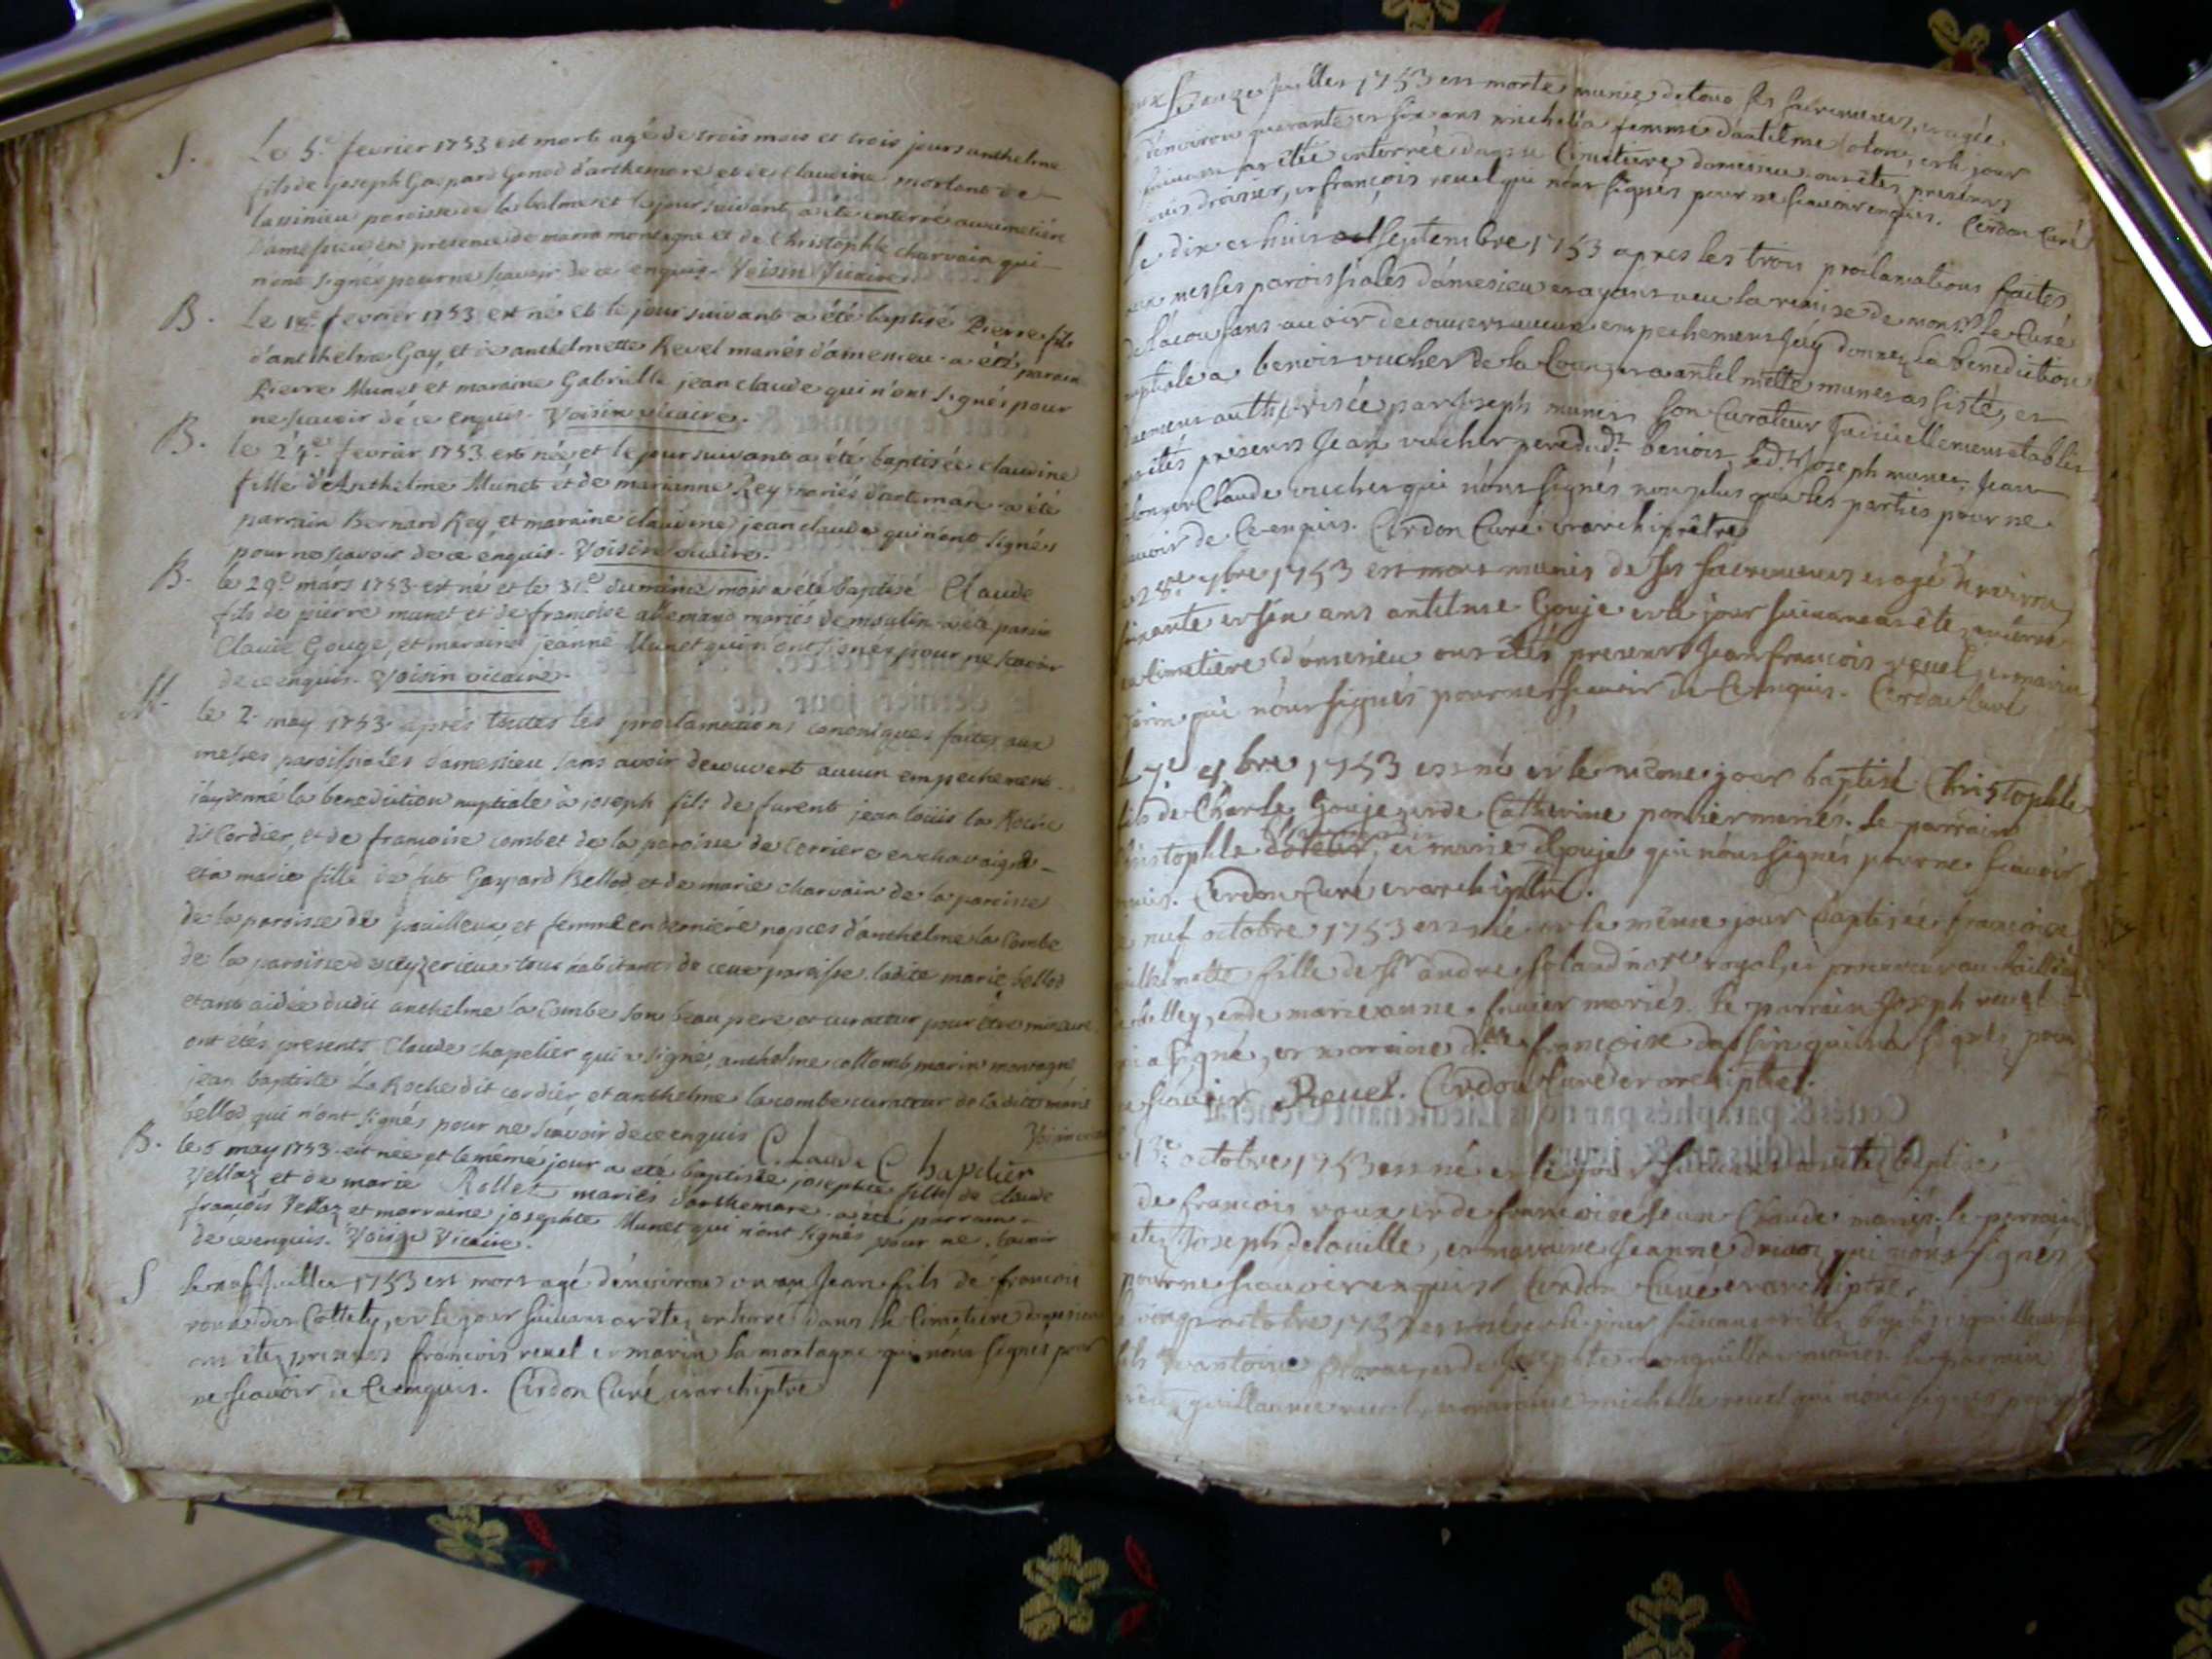 S. Le 5.e fevrier 1753 est mort agé de trois mois et trois jours anthelme
fils de joseph Gaspard Genod d'arthemare et de Claudine mortent de
lassinieu paroisse de la balme et le jour suivant a été enterré au cimetiére
Damessieu en presence de marin montagne et de Christophle charvain qui
n'ont signés pour ne scavoir de ce enquis. Voisin Vicaire.
B. Le 18.e fevrier 1753 est né et le jour suivant a été baptisé Pierre fils
d'anthelme Gay, et de anthelmette Revel mariés d'amesieu a été parain
Pierre Munet et maraine Gabrielle jean claude qui n'ont signés pour
ne scavoir de ce enquis. Voisin vicaire.
B. le 24.e fevrier 1753 est née et le jour suivant a été baptisée claudine
fille d'Anthelme Munet et de marianne Rey mariés d'artemare a été
parrain Bernard Rey, et maraine claudine jean claude qui n'ont signés
pour ne scavoir de ce enquis. Voisin vicaire.
B. le 29.e mars 1753 est né et le 31.e du même mois a été baptisé Claude
fils de pierre munet et de francoise allemand mariés de moulin a été parain
Claude Gouge, et maraine jeanne Munet qui n'ont signés pour ne scavoir
de ce enquis. Voisin vicaire.
M. le 2 may 1753 aprés toutes les proclamations canoniques faites aux
messes paroissiales d'amessieu sans avoir decouvert aucun empechement
j'ay donné la benediction nuptiale à joseph fils de furent jean louis la Roche
dit Cordier, et de francoise combet de la paroisse de Cerriere en chavaigne
et à marie fille de fut Gaspard Bellod et de marie charvain de la paroisse
de la paroisse de et femme en derniére nopces d'anthelme la Combe
de la paroisse de ceyzerieux tous habitants de cette paroisse. ladite marie bellod
etant aidée dudit anthelme la Combe son beau pere et curateur pour être mineure
ont étés presents Claude chapelier qui a signé, anthelme collomb marin montagne
jean baptiste la Roche dit cordier et anthelme lacombe curateur de ladite marie
bellod, qui n'ont signés pour ne scavoir de ce enquis Claude Chapelier
B. le 6 may 1753 est née et le même jour a eté baptisée josephte fille de claude
Vellaz et de marie Rollet mariés d'arthemare. a eté parrain
françois Vellaz et marraine josephte Munet qui n'ont signés pour ne scavoir
de ce enquis. Voisin Vicaire.
S le neuf juillet 1753 est mort agé d'environ un an Jean fils de francois
roux des Cottety, et le jour suivant a etez enterré dans le Cimetiere damesieu
ont etez presents francois revel et marin la montagne qui n'ont signés pour
ne scavoir de Ce enquis. Cerdon Curé et archiptre
juillet 1753 est morte munie de tous ses sacremens, et agée
d'environ quarante et six ans michela femme dantelme Colon, et le jour
suivant a etée enterrée dans le Cimetiere damesieu ont êtes presents
et françois revel qui n'ont signés pour ne scavoir enquis. Cerdon Curé
le dix et huit septembre 1753 apres les trois proclamations faites
aux messes paroissiales d'amesieu et ayant veu la remise de monsr. le Curé
de lacou sans avoir decouvert aucun empechement jáy donnez la benediction
nuptiale a benoit vucher de la Cou, et a antelmette munet assistée, et
authorisée par joseph munet son Curateur judiciellement establis
ont étés presents jean vucher pere dud.t benoit, led.t joseph munet, jean
et Claude vucher qui n'ont signés non plus que les parties pour ne
scavoir de Ce enquis. Cerdon Curé et archiprêtre
le 28.e 7bre 1753 est mort munis de ses sacremens et agé d'environ
soixante et six ans antelme Gouje et le jour suivant a ête enterré
au Cimetiere d'amesieu ont êtés presents Jean francois revel, et marin
qui n'ont signés pour ne scavoir de Ce enquis. Cerdon Curé
1753 est né et le meme jour baptisé Christophle
fils de Charle Gouje et de Catherine mariés. le parrain
Christophle et marie Gouje qui n'ont signés pour ne scavoir
enquis. Cerdon Curé et archiptre.
le neuf octobre 1753 est née et le même jour baptisée francoise
fille de sr andre solaud not.e royal, et procureur au bailliage
de belley, et de marieanne mariés. le parrain Joseph revel
qui a signé, et maraine d.lle francoise dassin qui n'a signés pour
ne scavoir Revel. Cerdon Curé et archiptre.
le 13.e octobre 1753 est né et le jour suivant a etez baptisé
de francois roux et de francoise jean Claude mariés. le parrain
a etez Joseph delaville, et maraine jeanne qui n'ont signés
pour ne scavoir enquis Cerdon Curé et archiptre.
le vingt octobre 1753 est né et le jour suivant a etez baptisé guillaume
fils d'antoine et de Josephte mariés. le parrain
a etez guillaume revel, et maraine michelle revel qui n'ont signés pour